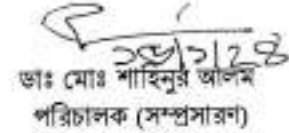 ডাঃ মোঃ শাহিনুর আলম
পরিচালক (সম্প্রসারণ)